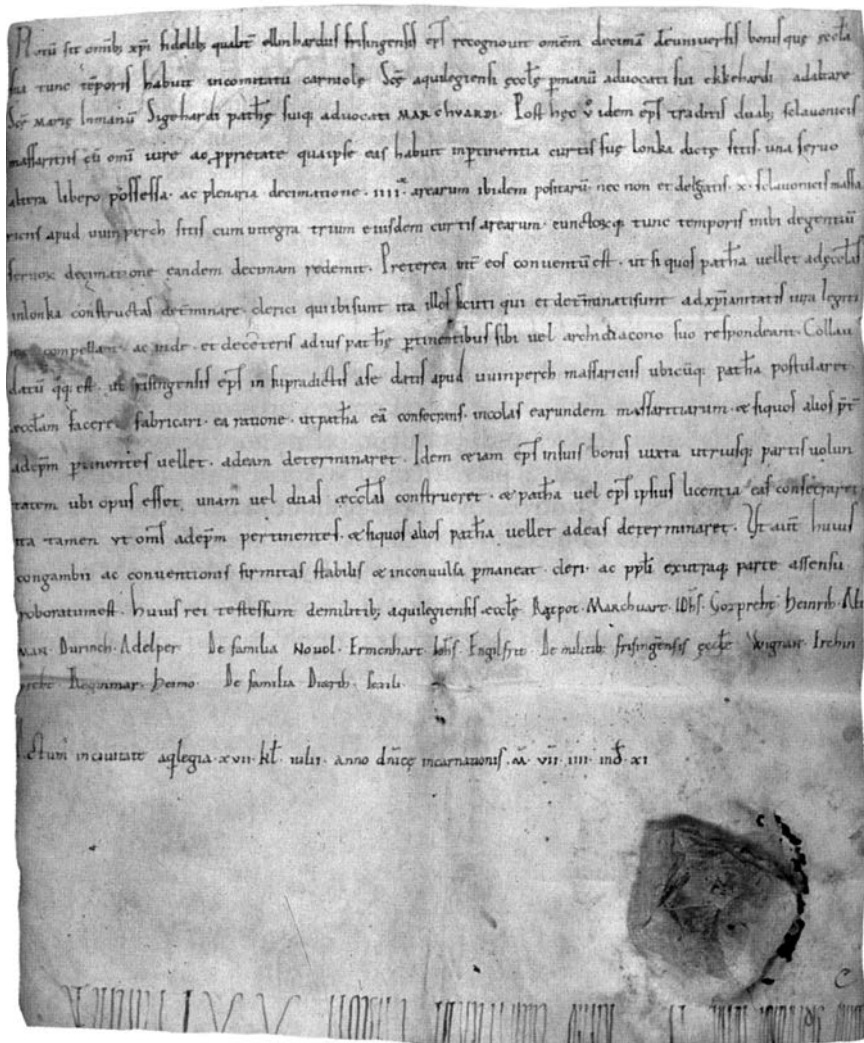 Notū sit omīb; xp̄i fidelib; qualit̄ ellinhardus frisingensis ep̄s recognouit omēm decimā deuniuersis bonis quę ęccła
sua tunc tēporis habuit incomitatu carniole Scę aquilegiensi ęccłę p̄manū aduocati sui ekkehardi adaltare
Scę MARIę Inmanū Sigehardi pat̄hę suiq; aduocati MARCHVVARDI. Post hęc v̊ idem ep̄s traditis duab; sclauonicis
massariciis cū omī iure ac p̄prietate qua ipse eas habuit inp̄tinentia curtis suę lonka dictę sitis. una seruo
altera libero possessa. ac plenaria decimatione. IIII. arearum ibidem positarū. nec non et delegatis. x. sclauonicis massa
riciis apud uuinperch sitis cum integra trium eiusdem curtis arearum. cunctoꝝq; tunc temporis inibi degentiū
seruoꝝ decimatione eandem decimam redemit. Preterea int̄ eos conuentū est. ut si quos pat̄ha uellet adęccłas
inlonka constructas det̄minare. clerici qui ibi sunt ita illos sicuti qui et det̄minati sunt ad xp̄ianitatis iura legitti
me compellant. ac inde. et deceteris adius pat̄hę p̄tinentibus sibi uel archidiacono suo respondeant. Collau
datū q̄q; est. ut frisingensis ep̄s in supradictis a se datis apud uuinperch massariciis ubicūq; pat̄ha postularet.
ęccłam faceret fabricari. ea ratione. ut pat̄ha eā consecrans. incolas earundem massaritiarum. & siquos alios p̄t̄
adep̄m p̄tinentes uellet. adeam determinaret. Idem etiam ep̄s insuis bonis iuxta utriusq; partis uolun
tatem ubi opus esset, unam uel duas ęccłas construeret. & pat̄ha uel ep̄s ipsius licentia eas consecraret
ita tamen vt om̄s adep̄m pertinentes. & siquos alios pat̄ha uellet adeas determinaret. Vt aut̄ huius
congambii ac conuentionis firmitas stabilis & inconuulsa p̄maneat. cleri. ac pp̄li exutraq; parte assensu
roboratum est. huius rei testes sunt demilitib; aquilegiensis ęccłę Ratpot. Marchuart. Ioh̄s. Gozpreht. Heinrih. Alt
MAN. Durinch. Adelper De familia Nouol. Ermenhart. Ioh̄s. Engilfrit. De militib; frisingensis ęccłę Wigrant. Irchin
preht. Reginmar. Heimo. De familia Dietrih.
Actum inciuitate aq̄legia. xvii. kł. iulii. anno dn̄icę incarnationis. M̄. VII. IIII. ind̄. XI